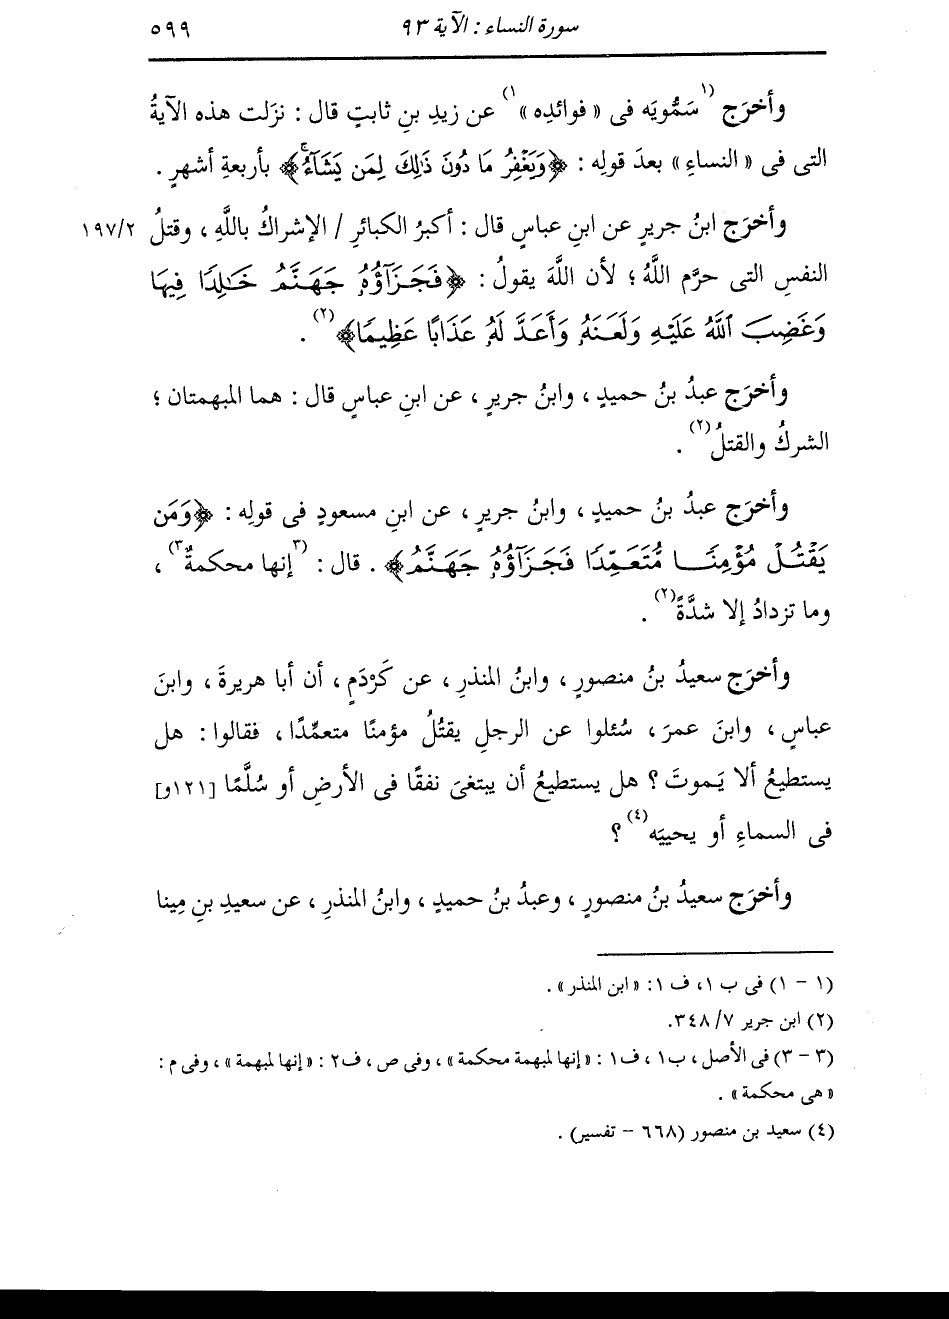 سورة النساء : الآية ٩٣ ٥٩٩
وأخرَج ⁽¹سَمُّويَه فى « فوائدِه »¹⁾ عن زيدِ بنِ ثابتٍ قال : نزَلت هذه الآيةُ
التى فى « النساءِ » بعدَ قولِه : ﴿وَيَغْفِرُ مَا دُونَ ذَٰلِكَ لِمَن يَشَآءُۚ﴾ بأربعةِ أشهرٍ .
وأخرَج ابنُ جريرٍ عن ابنِ عباسٍ قال : أكبرُ الكبائرِ / الإشراكُ باللَّهِ ، وقتلُ ١٩٧/٢
النفسِ التى حرَّم اللَّهُ ؛ لأن اللَّهَ يقولُ : ﴿فَجَزَآؤُهُۥ جَهَنَّمُ خَـٰلِدًا فِيهَا
وَغَضِبَ ٱللَّهُ عَلَيْهِ وَلَعَنَهُۥ وَأَعَدَّ لَهُۥ عَذَابًا عَظِيمًا﴾(٢) .
وأخرَج عبدُ بنُ حميدٍ ، وابنُ جريرٍ ، عن ابنِ عباسٍ قال : هما المبهمتان ؛
الشركُ والقتلُ(٢) .
وأخرَج عبدُ بنُ حميدٍ ، وابنُ جريرٍ ، عن ابنِ مسعودٍ فى قولِه : ﴿وَمَن
يَقْتُلْ مُؤْمِنًا مُّتَعَمِّدًا فَجَزَآؤُهُۥ جَهَنَّمُ﴾ . قال : (٣إنها محكمةٌ٣) ،
وما تزدادُ إلا شدَّةً(٢) .
وأخرَج سعيدُ بنُ منصورٍ ، وابنُ المنذرِ ، عن كَرْدَمٍ ، أن أبا هريرةَ ، وابنَ
عباسٍ ، وابنَ عمرَ ، سُئلوا عن الرجلِ يقتُلُ مؤمنًا متعمِّدًا ، فقالوا : هل
يستطيعُ ألا يَموتَ ؟ هل يستطيعُ أن يبتغىَ نفقًا فى الأرضِ أو سُلَّمًا [١٢١و]
فى السماءِ أو يحييَه(٤) ؟
وأخرَج سعيدُ بنُ منصورٍ ، وعبدُ بنُ حميدٍ ، وابنُ المنذرِ ، عن سعيدِ بنِ مِينا
(١ - ١) فى ب ١، ف ١: « ابن المنذر » .
(٢) ابن جرير ٧/ ٣٤٨.
(٣ - ٣) فى الأصل ، ب١ ، ف١ : « إنها لمبهمة محكمة » ، وفى ص ، ف٢ : « إنها لمبهمة » ، وفى م :
« هى محكمة » .
(٤) سعيد بن منصور (٦٦٨ - تفسير) .